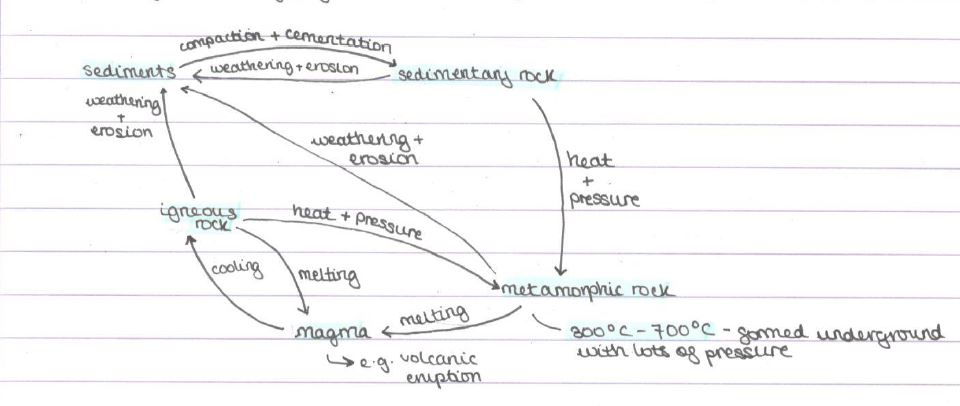 compaction + cementation
sediments
weathering + erosion
sedimentary rock
weathering
+
erosion
weathering +
erosion
heat
+
pressure
igneous
rock
heat + pressure
cooling
melting
metamorphic rock
magma
melting
300°C - 700°C - formed underground
with lots of pressure
e.g. volcanic
eruption